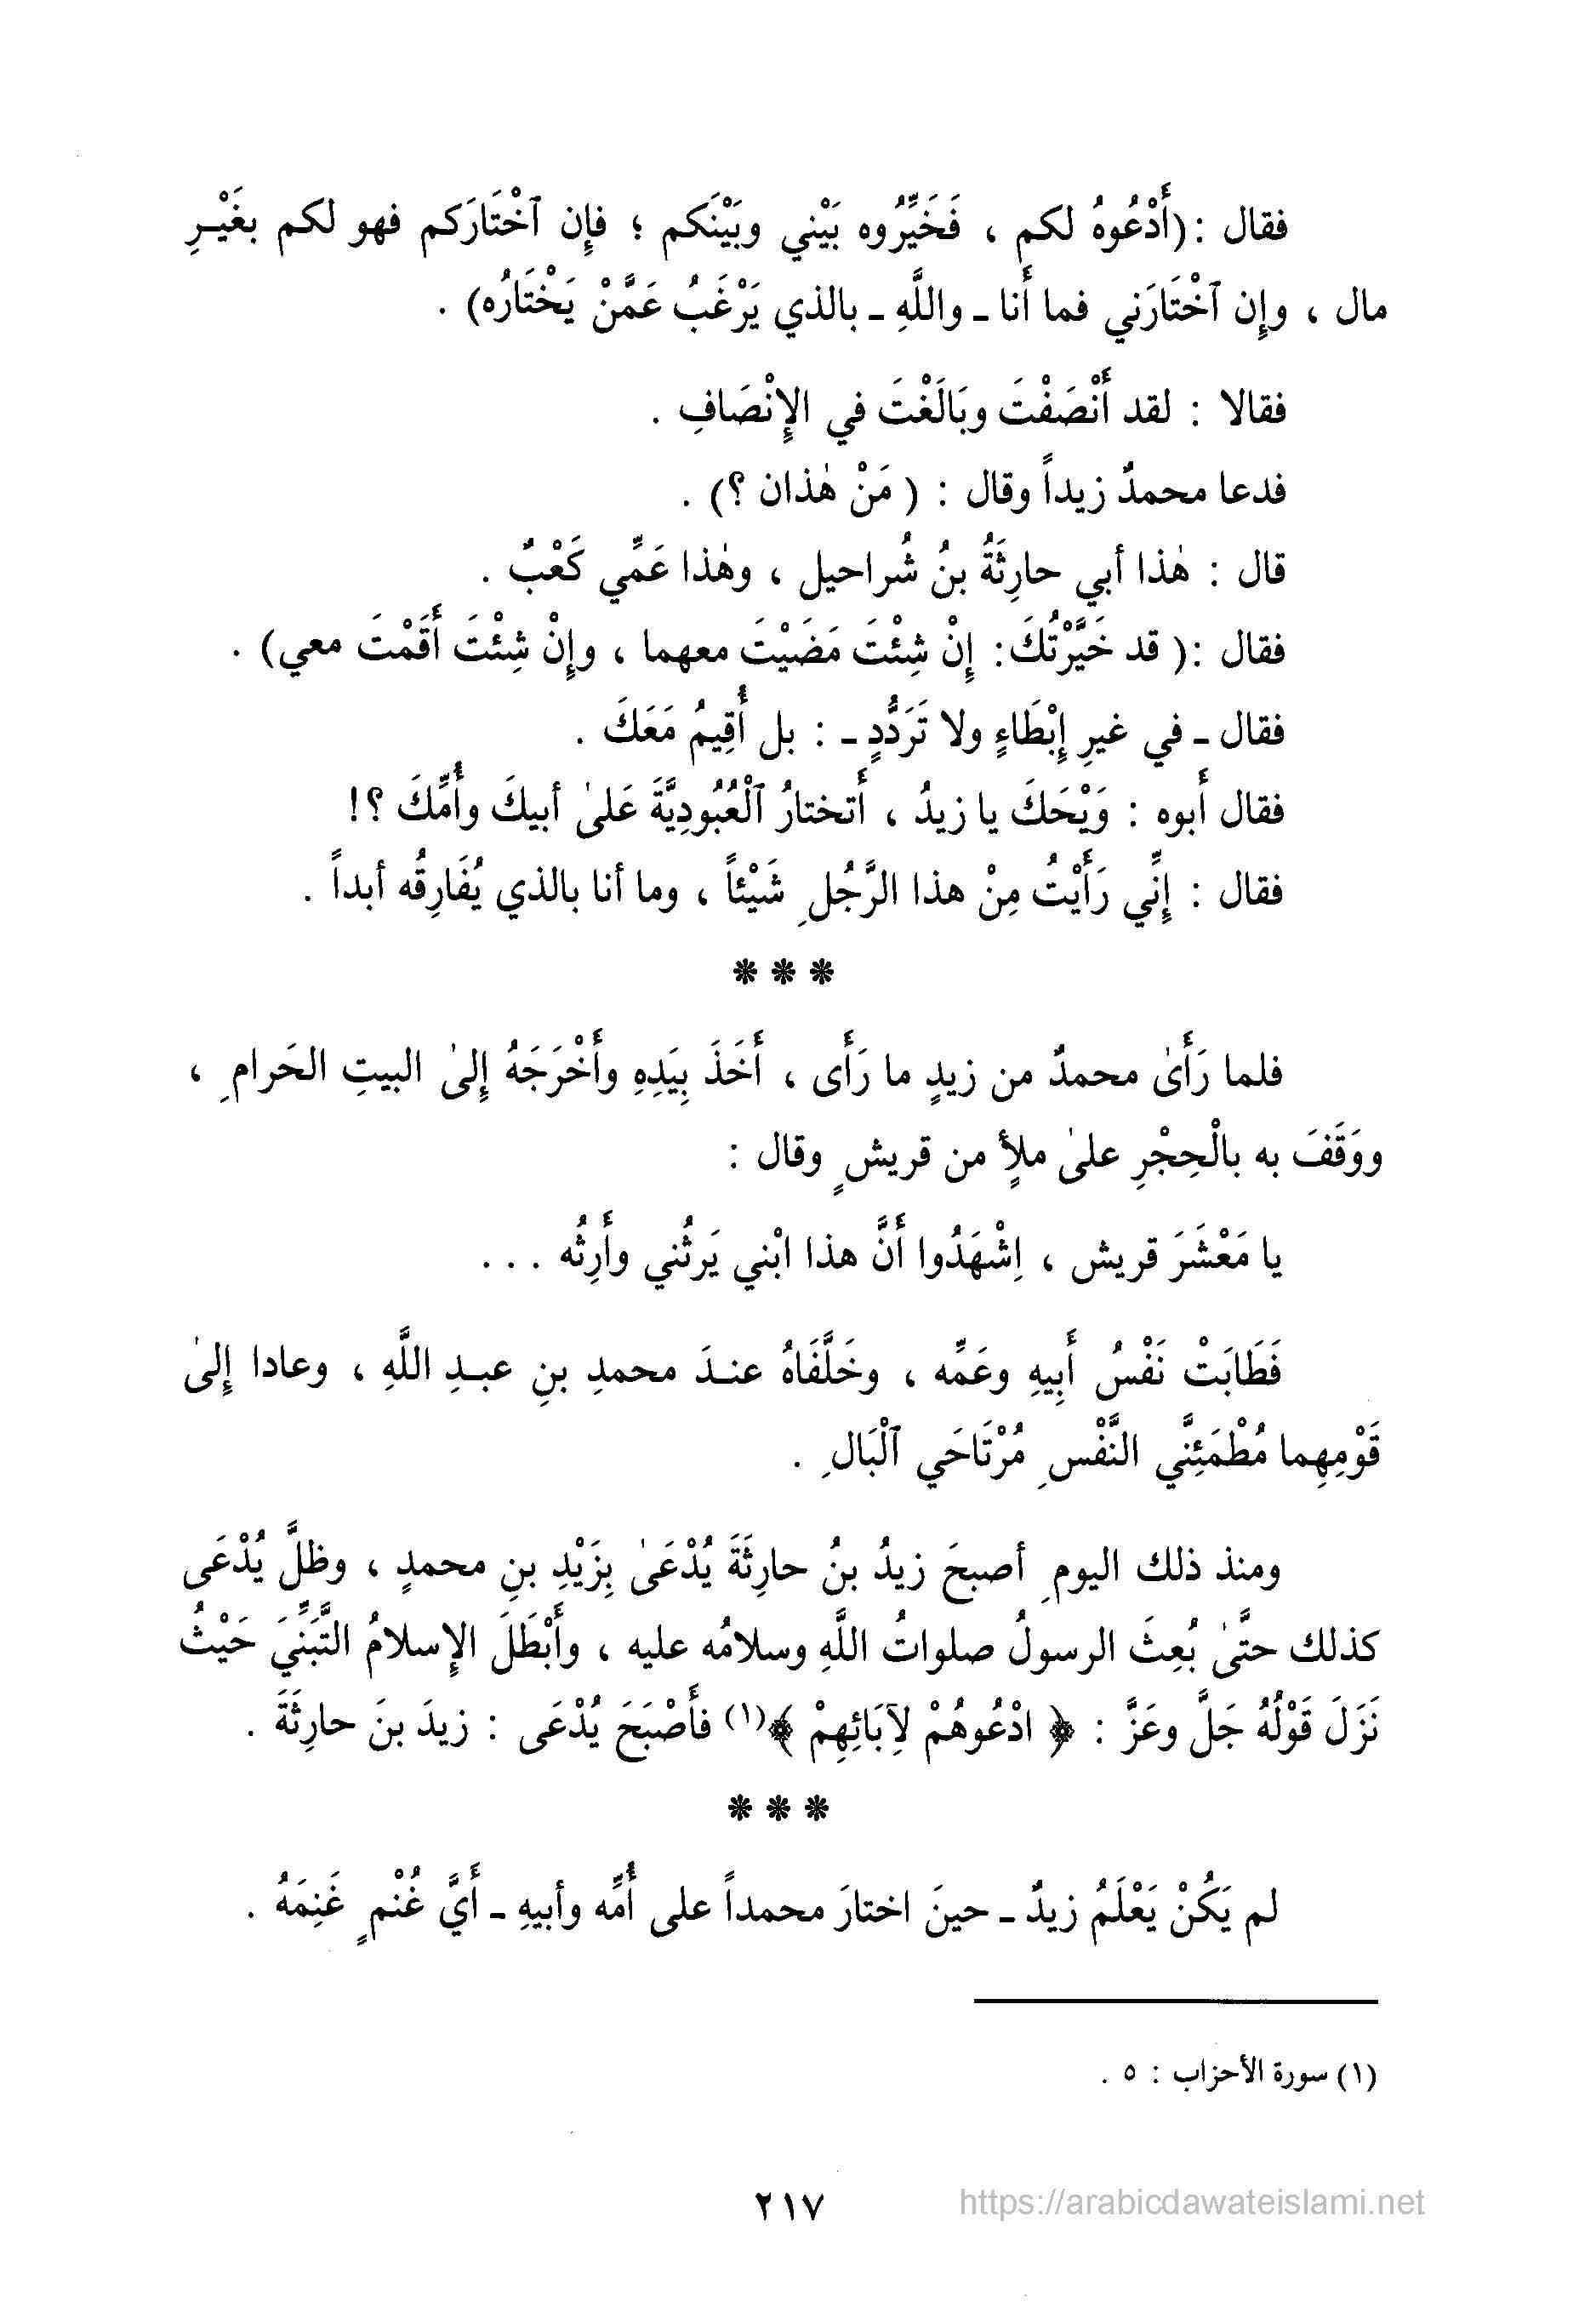 فقال :(أَدْعُوهُ لكم ، فَخَيِّرُوه بَيْني وبَيْنَكم ؛ فإِن ٱخْتَارَكم فهو لكم بغَيْـرِ
مال ، وإِن ٱخْتَارَني فما أَنا ـ واللَّهِ ـ بالذي يَرْغَبُ عَمَّنْ يَخْتَارُه) .
فقالا : لقد أَنْصَفْتَ وبَالَغْتَ في الإِنْصَافِ .
فدعا محمدٌ زيداً وقال : ( مَنْ هٰذان ؟) .
قال : هٰذا أبي حارِثَةُ بنُ شُراحيل ، وهٰذا عَمِّي كَعْبٌ .
فقال :( قد خَيَّرْتُكَ: إِنْ شِئْتَ مَضَيْتَ معهما ، وإِنْ شِئْتَ أَقَمْتَ معي) .
فقال ـ في غيرِ إِبْطَاءٍ ولا تَرَدُّدٍ ـ : بل أُقِيمُ مَعَكَ .
فقال أَبوه : وَيْحَكَ يا زيدُ ، أَتختارُ ٱلْعُبُودِيَّةَ عَلىٰ أبيكَ وأُمِّكَ ؟!
فقال : إِنِّي رَأَيْتُ مِنْ هذا الرَّجُلِ شَيْئاً ، وما أنا بالذي يُفَارِقُه أبداً .
* * *
فلما رَأَىٰ محمدٌ من زيدٍ ما رَأَى ، أَخَذَ بِيَدِهِ وأَخْرَجَهُ إِلىٰ البيتِ الحَرامِ ،
ووَقَفَ به بالْحِجْرِ علىٰ ملأٍ من قريشٍ وقال :
يا مَعْشَرَ قريش ، اِشْهَدُوا أَنَّ هذا ابْني يَرِثُني وأَرِثُه . . .
فَطَابَتْ نَفْسُ أَبِيهِ وعَمِّه ، وخَلَّفَاهُ عنـدَ محمدِ بنِ عبـدِ اللَّهِ ، وعادا إِلىٰ
قَوْمِهِما مُطْمَئِنَّي النَّفْسِ مُرْتَاحَي ٱلْبَالِ .
ومنذ ذلك اليومِ أصبحَ زيدُ بنُ حارِثَةَ يُدْعَىٰ بِزَيْدِ بنِ محمدٍ ، وظلَّ يُدْعَى
كذلك حتَّىٰ بُعِثَ الرسولُ صلواتُ اللَّهِ وسلامُه عليه ، وأَبْطَلَ الإِسلامُ التَّبَنِّيَ حَيْثُ
نَزَلَ قَوْلُهُ جَلَّ وعَزَّ : ﴿ ادْعُوهُمْ لآِبَائِهِمْ ﴾(١) فأَصْبَحَ يُدْعَى : زيدَ بنَ حارِثَةَ .
* * *
لم يَكُنْ يَعْلَمُ زيدٌ ـ حينَ اختارَ محمداً على أُمِّه وأبيهِ ـ أَيَّ غُنْمٍ غَنِمَهُ .
(١) سورة الأحزاب : ٥ .
٢١٧
https://arabicdawateislami.net